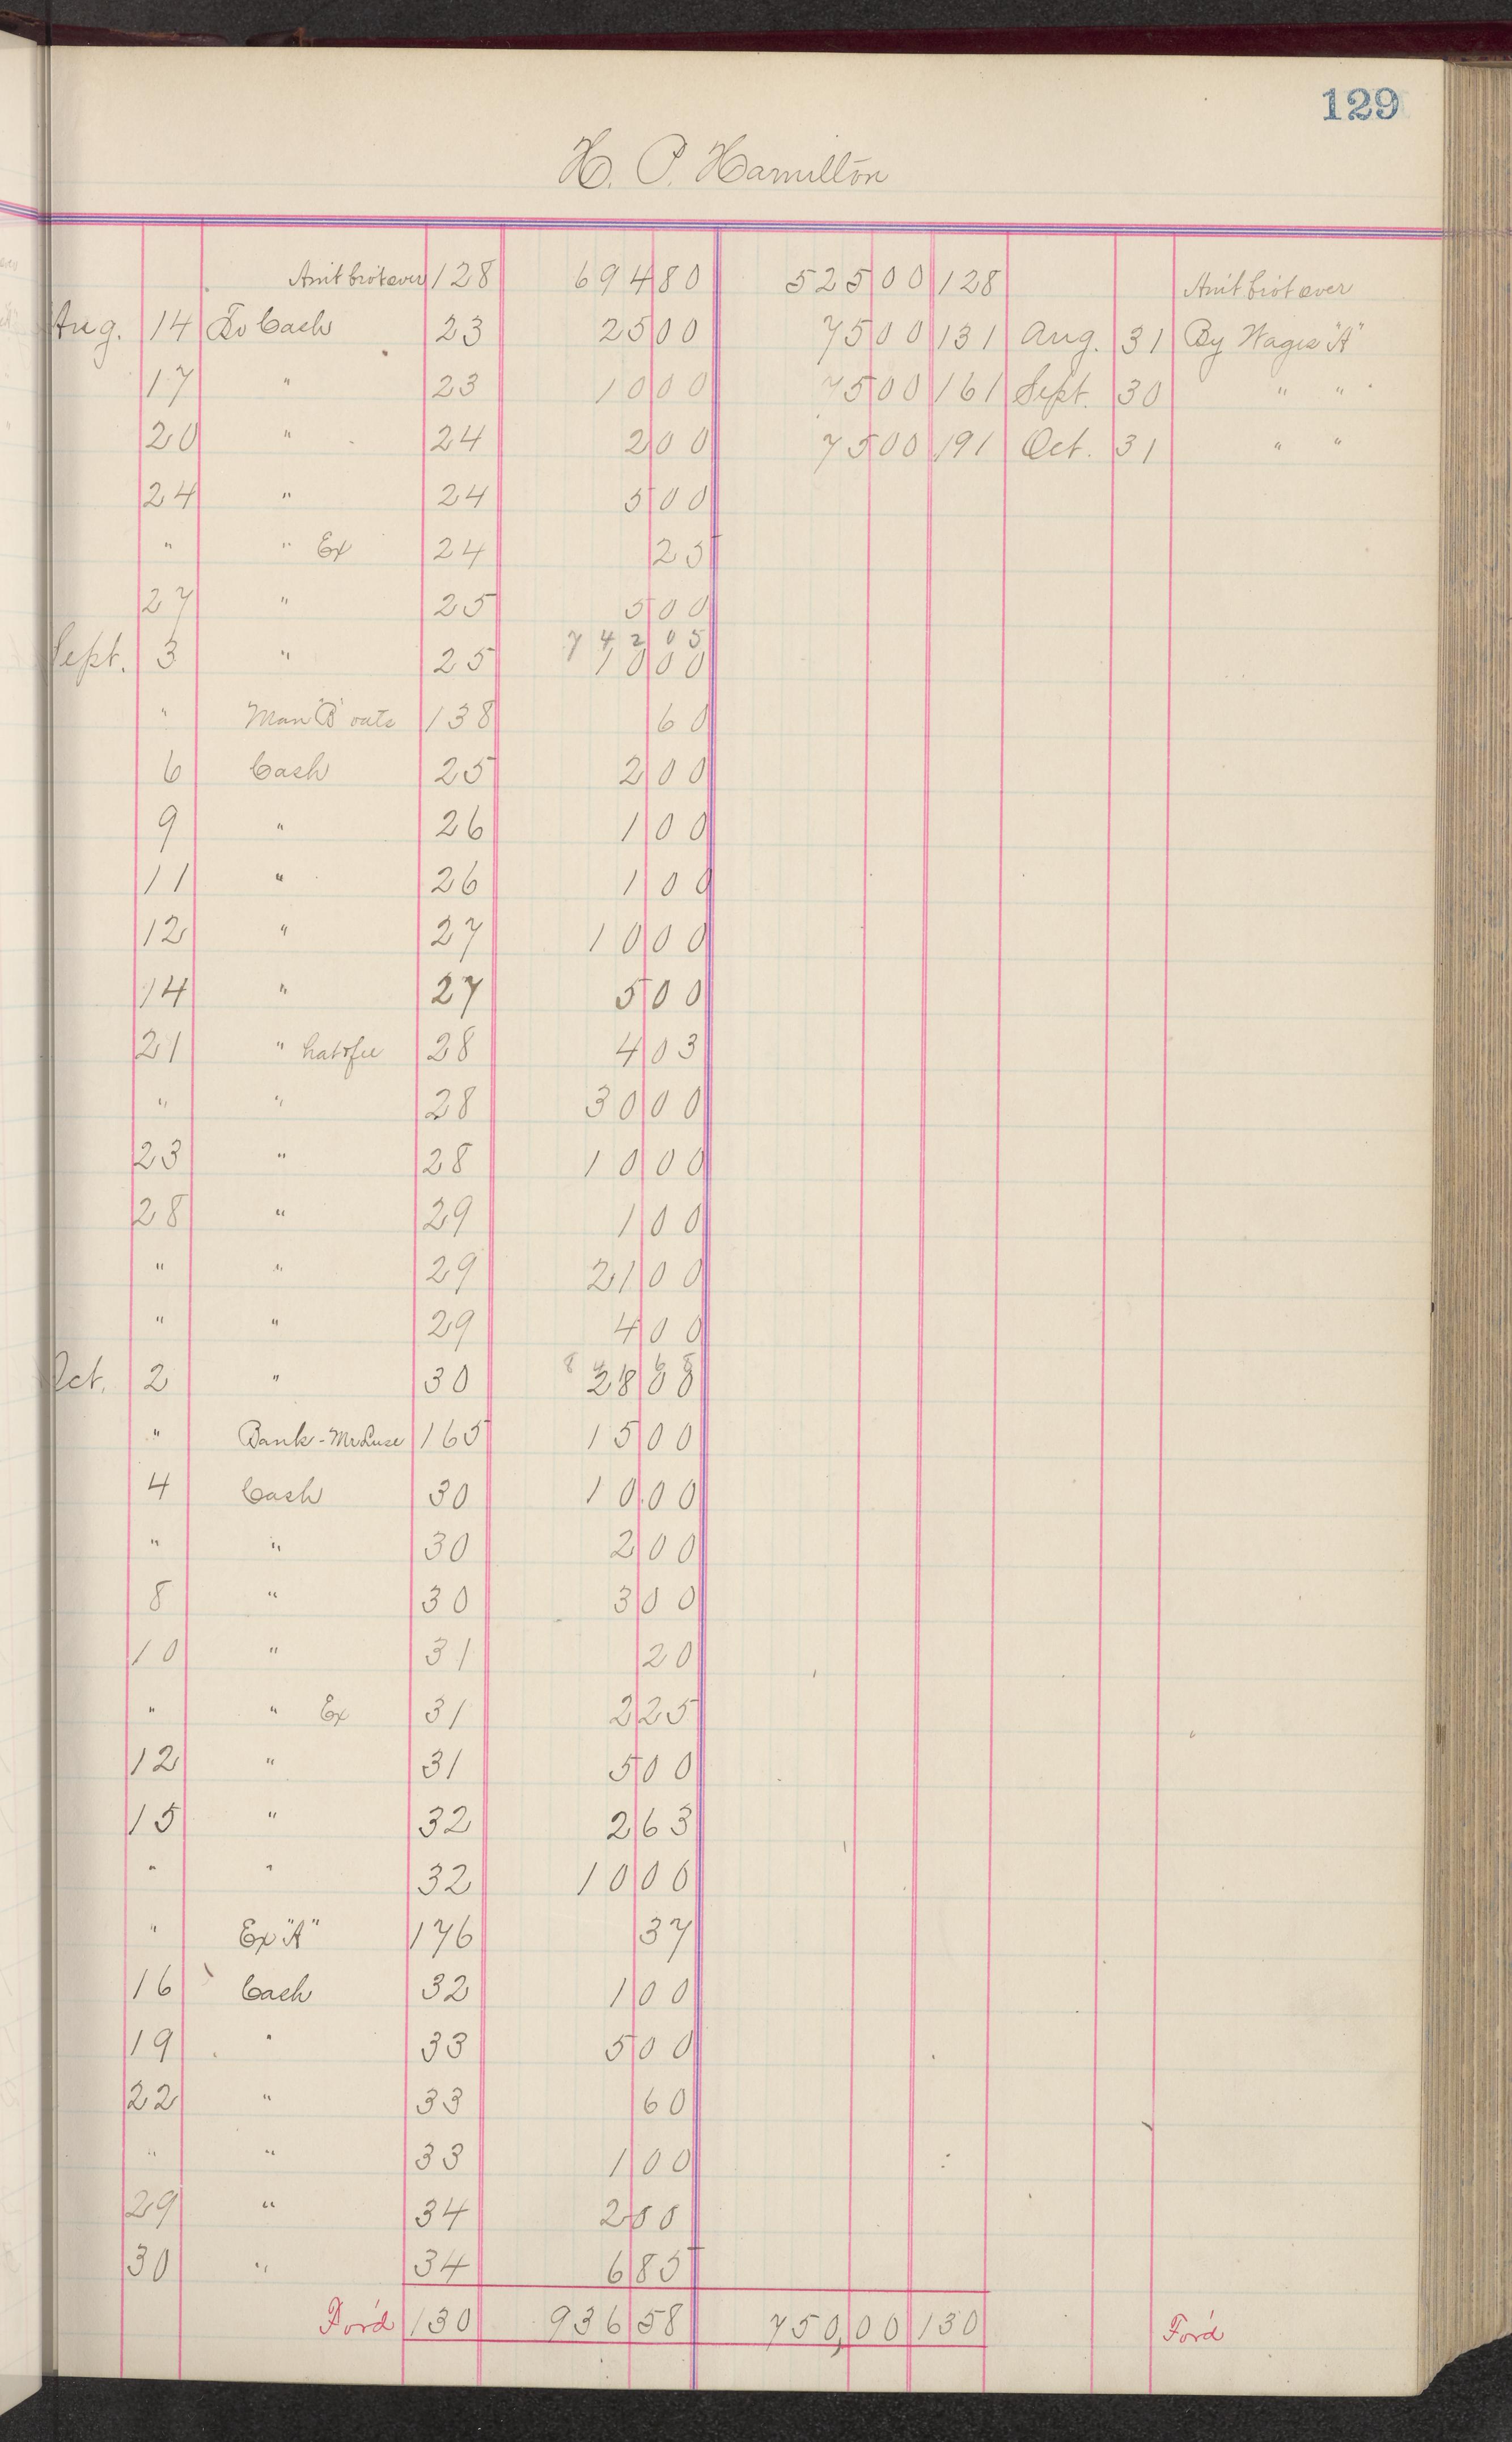 129
H. P. Hamilton
Amt brot over 128 694 80 525 00 128 Amt brot over
Aug. 14 To Cash 23 25 00 75 00 131 Aug. 31 By Wages "A"
17 " 23 10 00 75 00 161 Sept. 30 " "
20 " 24 2 00 75 00 191 Oct. 31 " "
24 " 24 5 00
" " Ex 24 25
27 " 25 5 00
742 05
Sept. 3 " 25 10 00
" Man "B" oats 138 60
6 Cash 25 2 00
9 " 26 1 00
11 " 26 1 00
12 " 27 10 00
14 " 27 5 00
21 " 28 4 03
" " 28 30 00
23 " 28 10 00
28 " 29 1 00
" " 29 21 00
" " 29 4 00
Oct. 2 " 30
" Bank - 165 15 00
4 Cash 30 10 00
" " 30 2 00
8 " 30 3 00
10 " 31 20
" " Ex 31 2 25
12 " 31 5 00
15 " 32 2 63
" " 32 10 00
" Ex "A" 176 37
16 Cash 32 1 00
19 " 33 5 00
22 " 33 60
" " 33 1 00
29 " 34 2 00
30 " 34 6 85
For'd 130 936 58 750,00 130 For'd